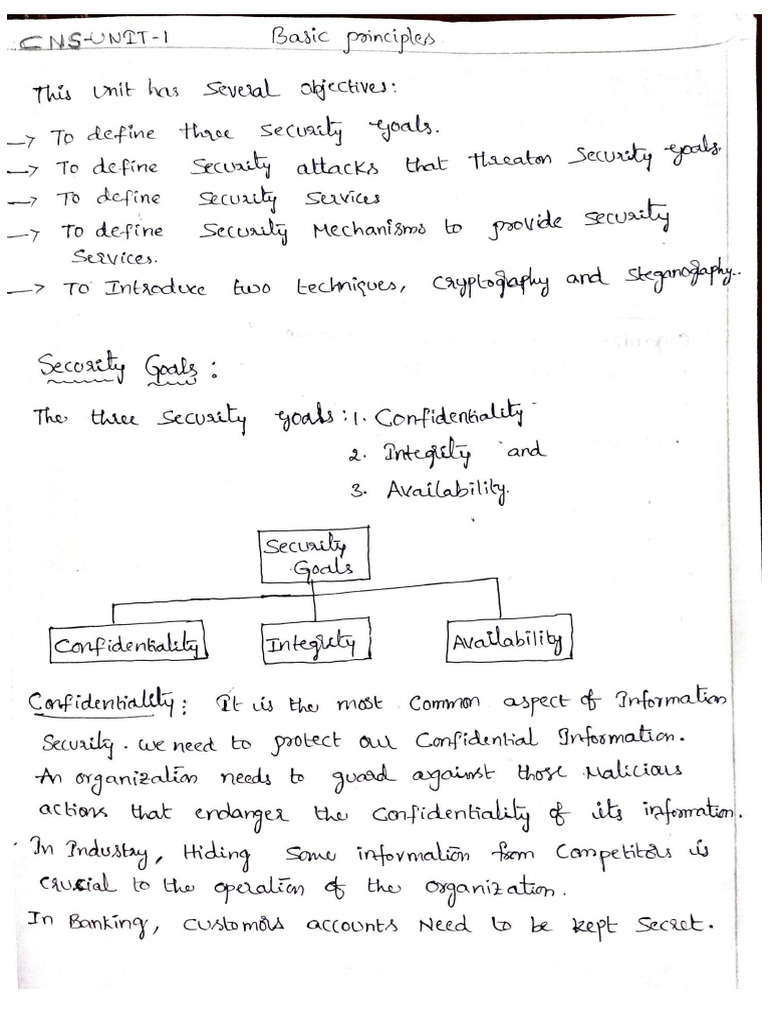 CNS-UNIT-1 Basic principles
This unit has several objectives:
→ To define three security goals.
→ To define security attacks that threaton security goals.
→ To define security services
→ To define security Mechanisms to provide security
services.
→ To Introduce two techniques, cryptography and steganography..
Security Goals:
The three security goals: 1. Confidentiality
2. Integrity and
3. Availability.
Security
Goals
Confidentiality Integrity Availability
Confidentiality: It is the most common aspect of Information
Security. we need to protect our Confidential Information.
An organization needs to guard against those Malicious
actions that endanger the confidentiality of its information.
In Industry, Hiding some information from Competitors is
crucial to the operation of the organization.
In Banking, customers accounts Need to be kept secret.